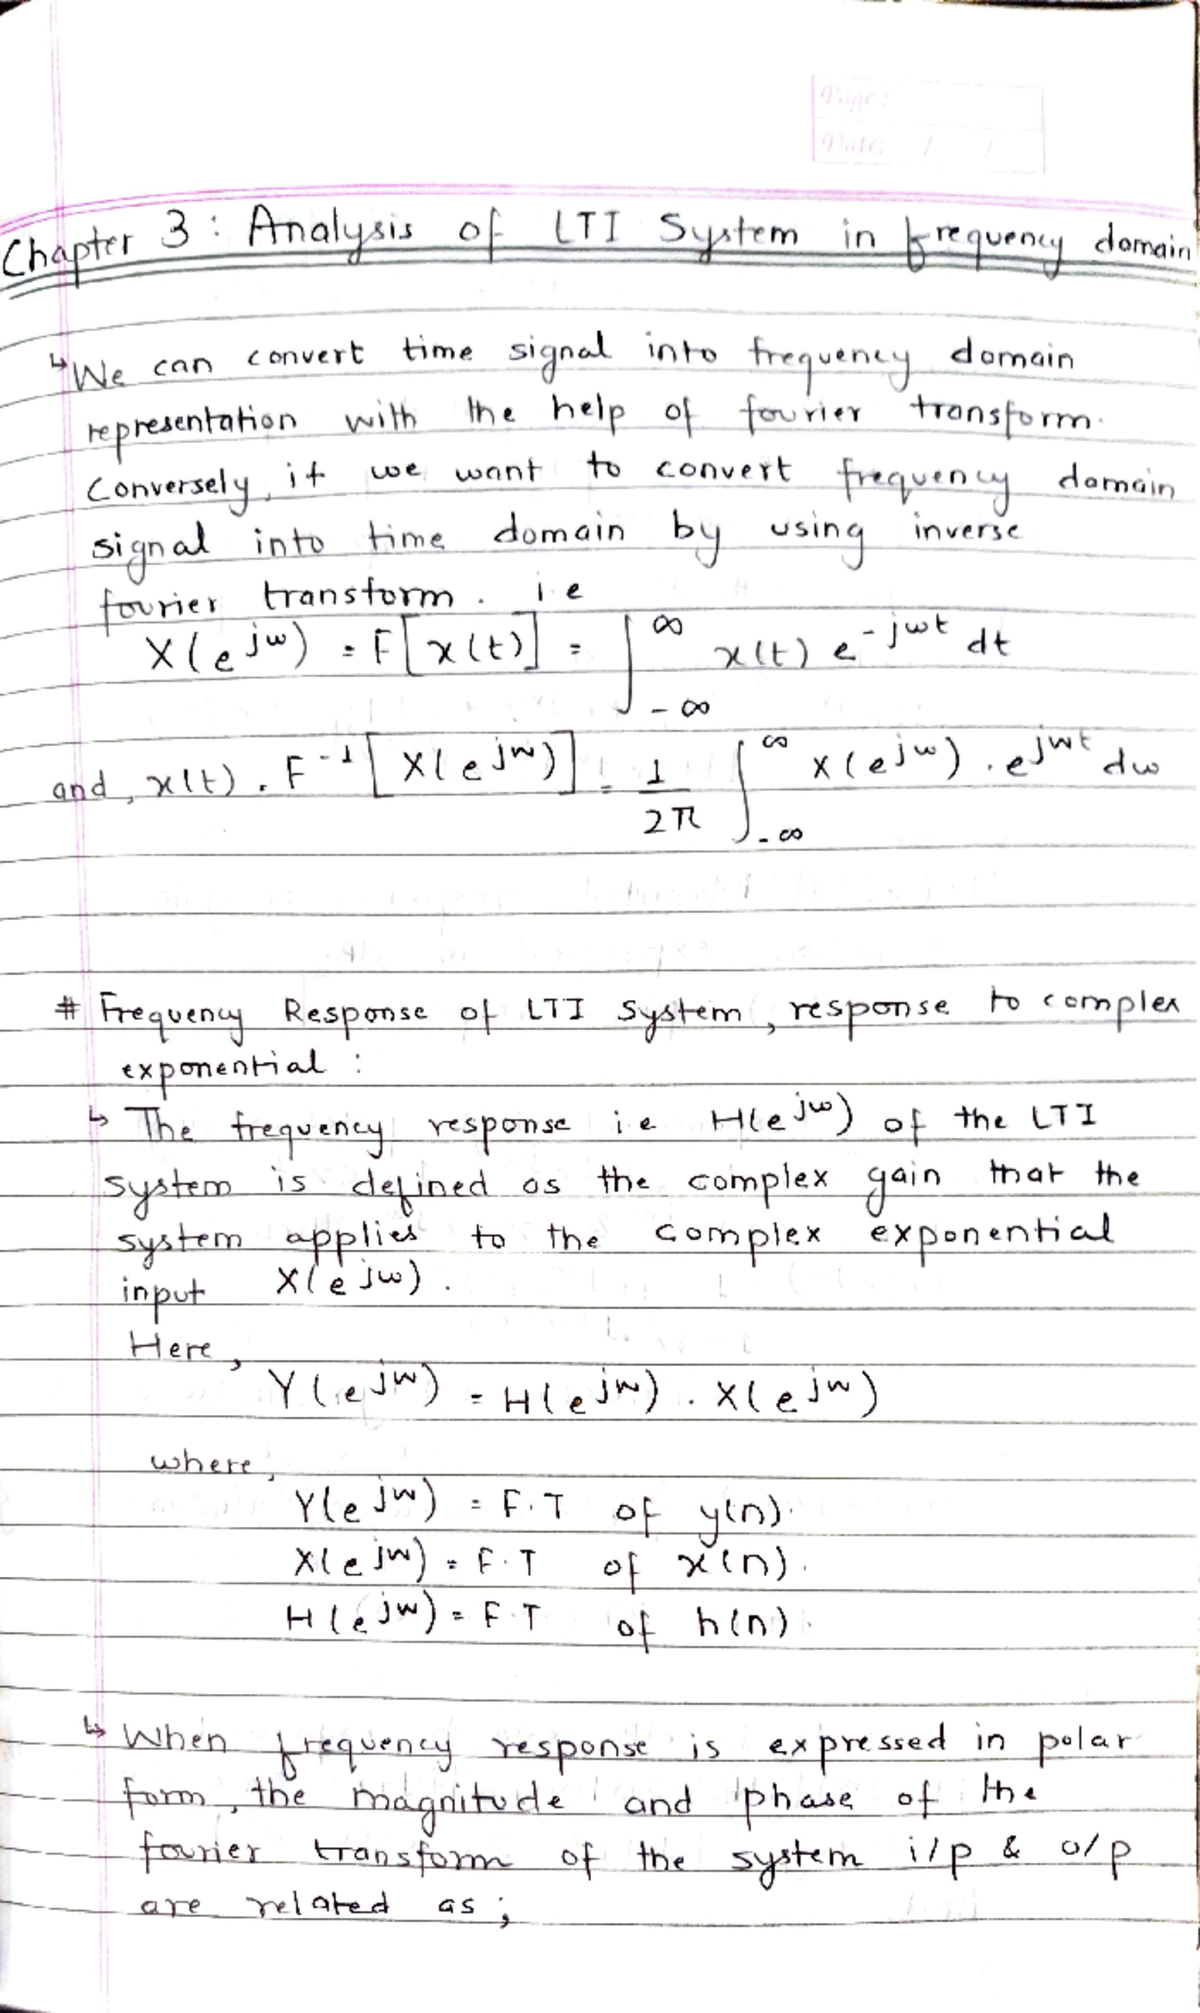 Page:
Date: / /
Chapter 3: Analysis of LTI System in frequency domain
↳ We can convert time signal into frequency domain
representation with the help of fourier transform.
Conversely, if we want to convert frequency domain
signal into time domain by using inverse
fourier transform. i.e
X(e^jω) = F[x(t)] = ∫_{-∞}^{∞} x(t) e^{-jωt} dt
and, x(t) = F^{-1}[X(e^jω)] = 1/2π ∫_{-∞}^{∞} X(e^jω).e^{jωt} dω
# Frequency Response of LTI System, response to complex
exponential :
↳ The frequency response i.e H(e^jω) of the LTI
system is defined as the complex gain that the
system applies to the complex exponential
input X(e^jω).
Here,
Y(e^jω) = H(e^jω) . X(e^jω)
where,
Y(e^jω) = F.T of y(n).
X(e^jω) = F.T of x(n).
H(e^jω) = F.T of h(n).
↳ When frequency response is expressed in polar
form, the magnitude and phase of the
fourier transform of the system i/p & o/p
are related as ;